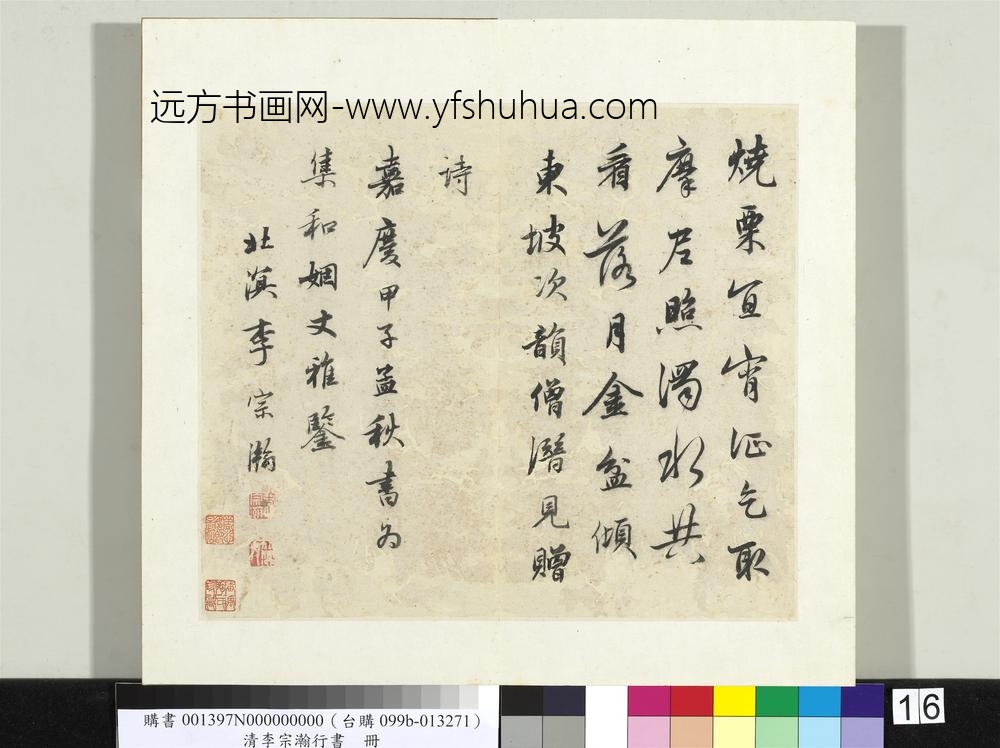 远方书画网-www.yfshuhua.com
燒栗宜宵征乞取
摩尼照濁水共
看落月金盆傾
東坡次韻僧潛見贈
詩
嘉慶甲子孟秋書為
集和姻丈雅鑒
北溟李宗瀚
購書 001397N000000000(台購 099b-013271)
清李宗瀚行書 冊
16